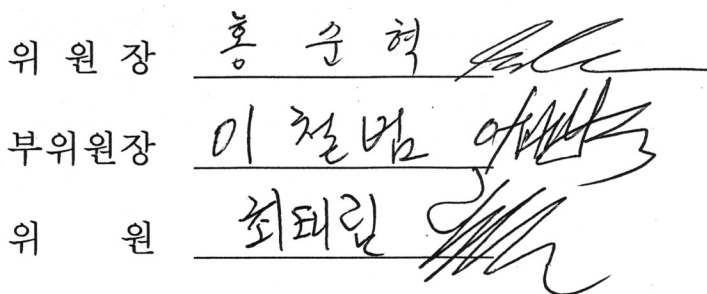 위 원 장 홍 순 혁
부위원장 이 철 범
위 원 최태림